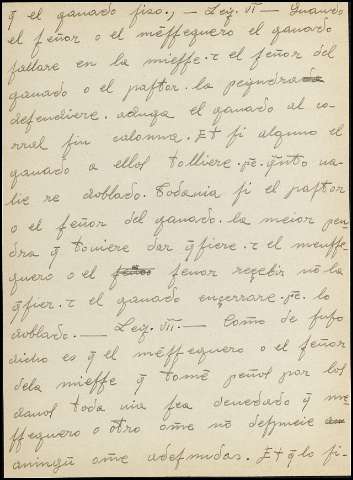 q̃ el ganado fizo., — Ley. VI — Quando
el señor o el messeguero el ganado
fallare en la miesse. τ el señor del
ganado o el pastor. la peyndra
defendiere. aduga el ganado al co-
rral sin calonna. Et si alguno el
ganado a ellos tolliere. pe. q̃nto ua-
lie re doblado. Todauia si el pastor
o el señor del ganado. la meior pen-
dra q̃ touiere dar q̃siere. τ el meusse-
guero o el senor reçebir no la
q̃sier. τ el ganado ençerrare. pe. lo
doblado. — Ley. VII. — Como de suso
dicho es q̃ el messeguero o el señor
dela miesse q̃ tome peños por los
danos toda uia sea deuedado q̃ me-
sseguero o otro ome no despueie
aningũ ome adesnudas. Et q̃ lo fi-